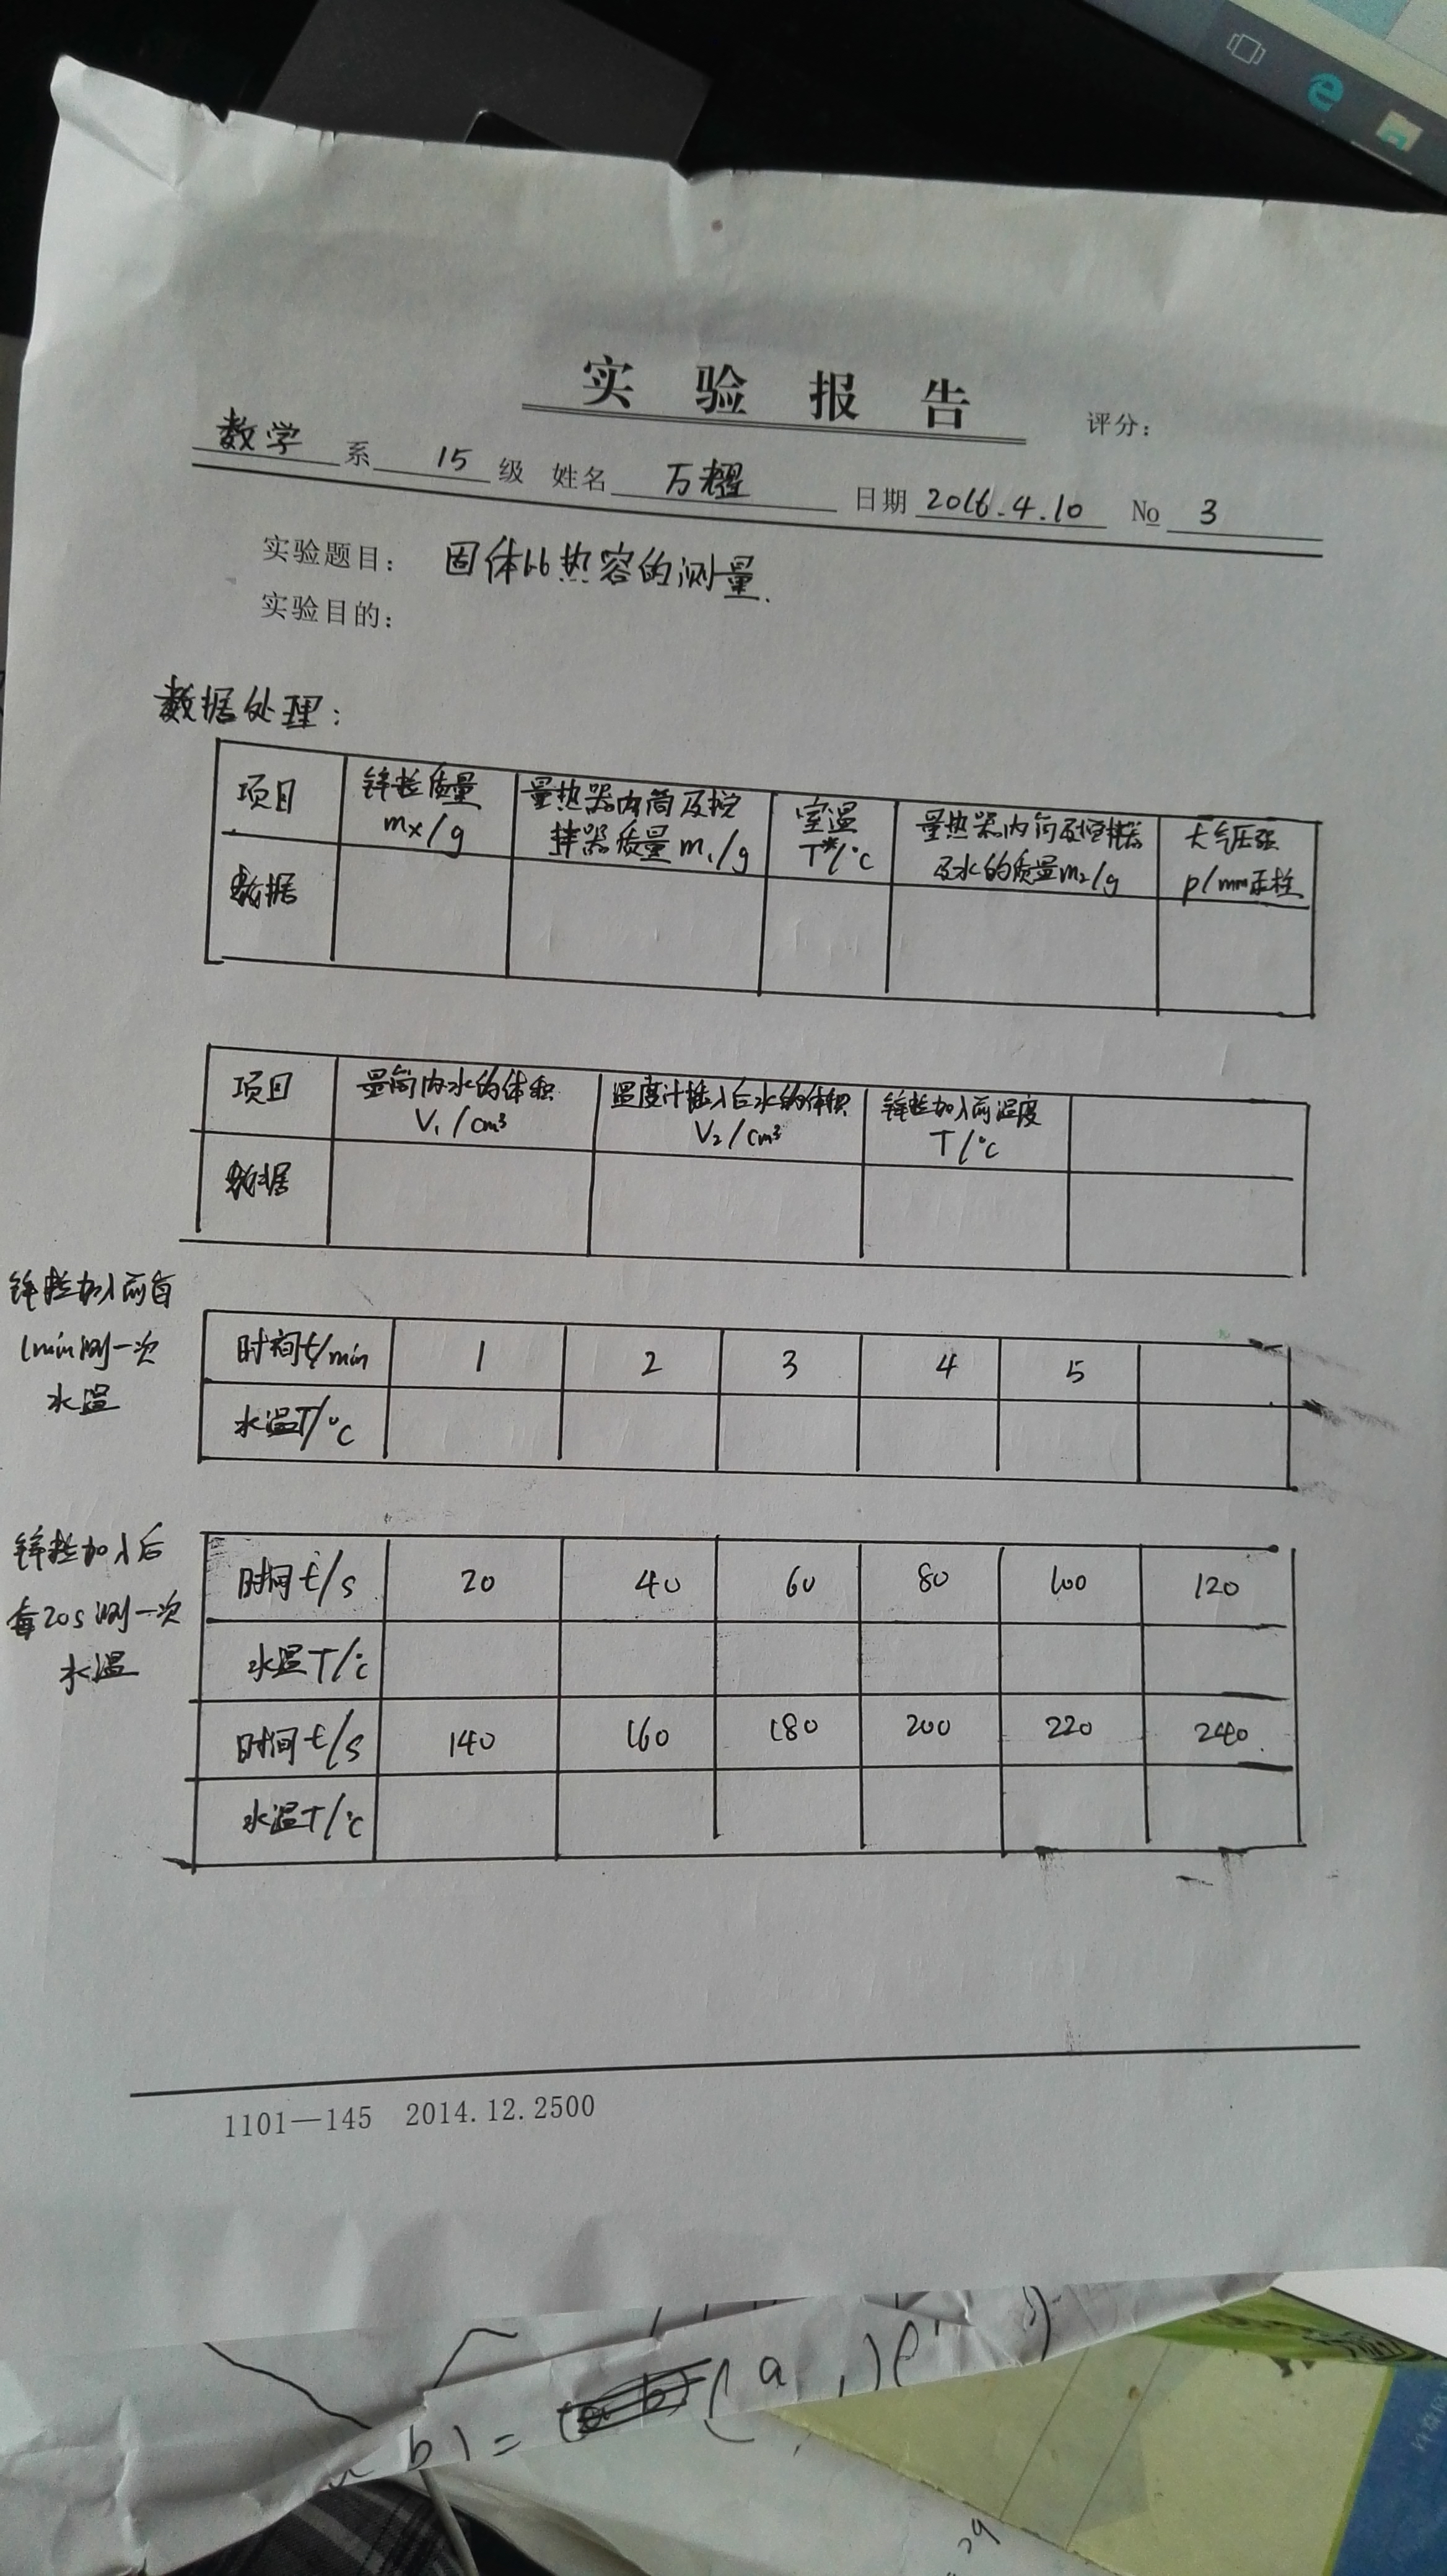 实验报告
评分：
数学 系 15 级 姓名 万耀 日期 2016.4.10 No 3
实验题目： 固体比热容的测量.
实验目的：
数据处理：
项目 锌粒质量 mx/g 量热器内筒及搅拌器质量 m1/g 室温 T*/°C 量热器内筒及搅拌器及水的质量m2/g 大气压强 p/mm汞柱
数据
项目 量筒内水的体积 V1/cm³ 温度计插入后水的体积 V2/cm³ 锌粒加入前温度 T/°C
数据
锌粒加入前每
1min测一次
水温
时间t/min 1 2 3 4 5
水温T/°C
锌粒加入后
每20s测一次
水温
时间t/s 20 40 60 80 100 120
水温T/°C
时间t/s 140 160 180 200 220 240
水温T/°C
1101—145 2014.12.2500
b)=
29